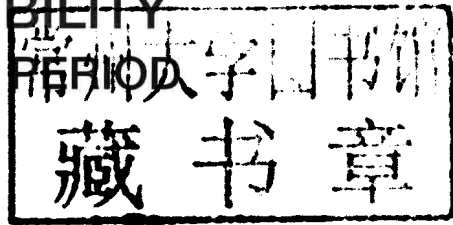 BILITY
PERIOD
常州大学图书馆
藏书章